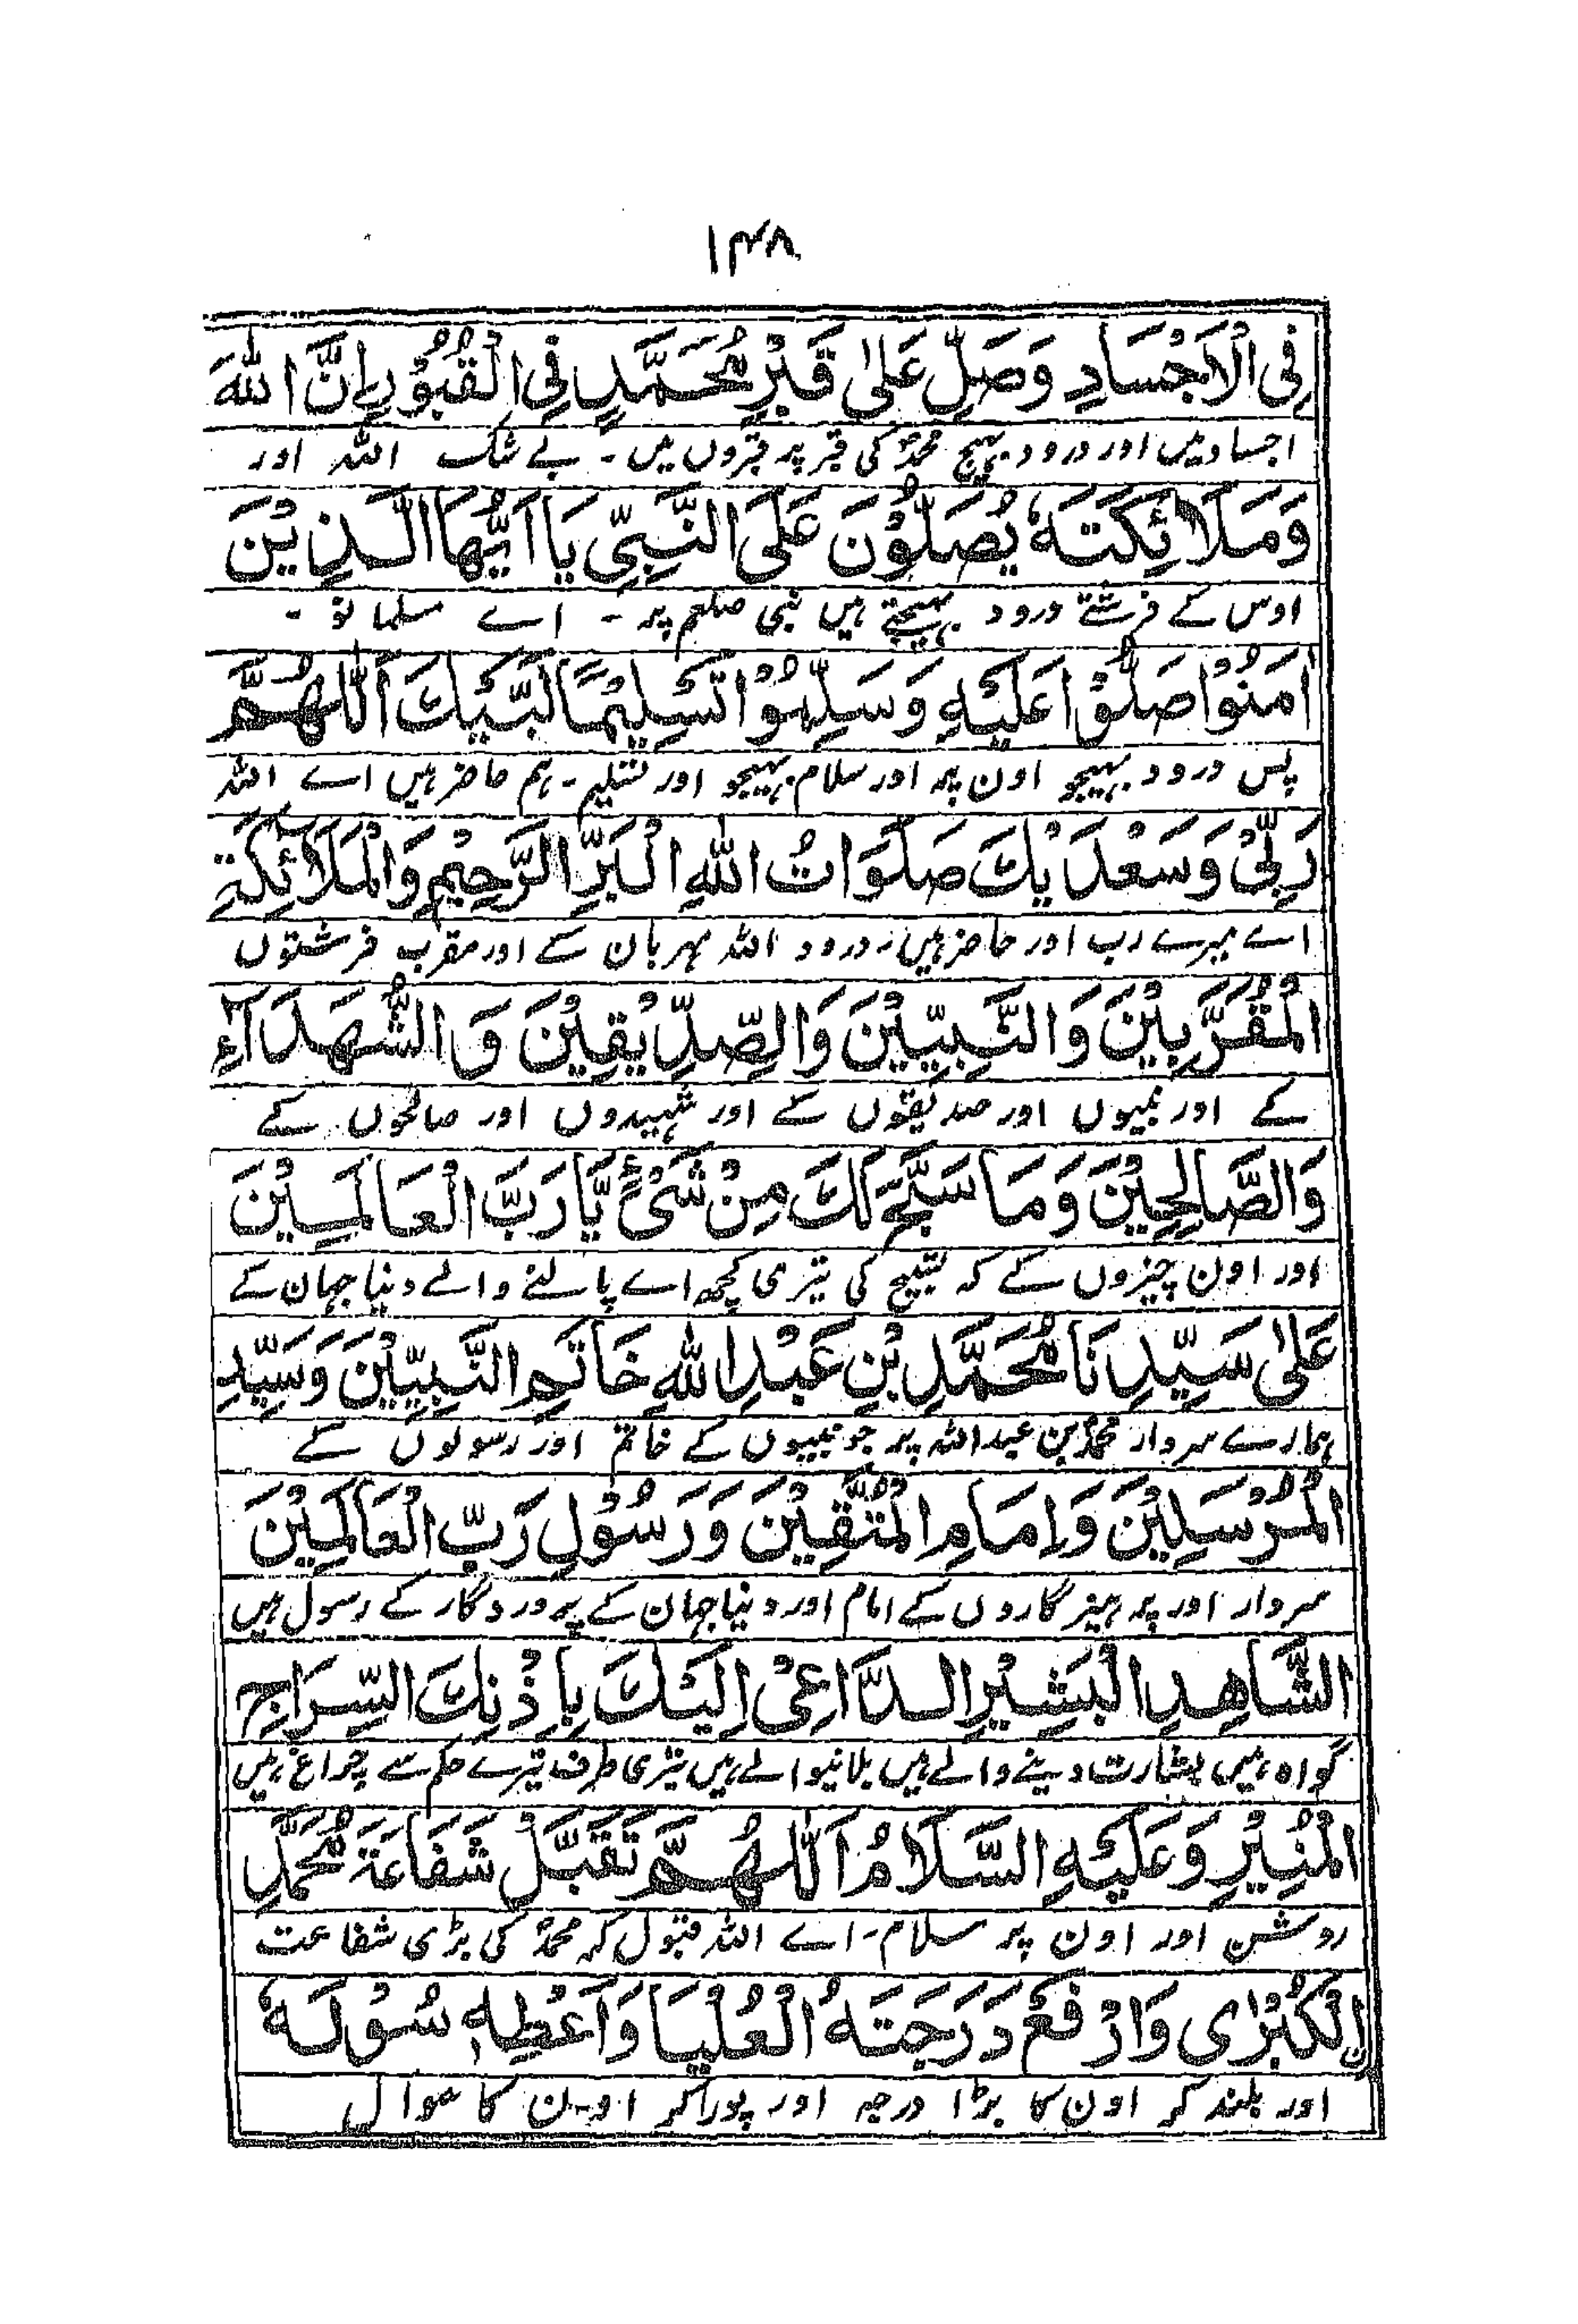 ۱۴۸
فِی الْاَجْسَادِ وَصَلِّ عَلٰی قَبْرِ مُحَمَّدٍ فِی الْقُبُوْرِ اِنَّ اللهَ
اجساد میں اور درود بہیج محمدؐ کی قبر پر قبروں میں ۔ بے شک اللہ اور
وَمَلَائِکَتَهٗ یُصَلُّوْنَ عَلَی النَّبِیِّ یَا اَیُّهَا الَّذِیْنَ
اوس کے فرشتے درود بہیجتے ہیں نبی صلعم پر ۔ اے مسلما نو ۔
اٰمَنُوْا صَلُّوْا عَلَیْهِ وَسَلِّمُوْا تَسْلِیْمًا لَبَّیْكَ اَللّٰهُمَّ
پس درود بہیجو اون پر اور سلام بہیجو اور تسلیم ۔ ہم حاضر ہیں اے اللہ
رَبِّیْ وَسَعْدَیْكَ صَلَوَاتُ اللهِ الْبَرِّ الرَّحِیْمِ وَالْمَلَائِکَةِ
اے میرے رب اور حاضر ہیں ۔ درود اللہ مہربان کے اور مقرب فرشتوں
الْمُقَرَّبِیْنَ وَالنَّبِیِّیْنَ وَالصِّدِّیْقِیْنَ وَ الشُّهَدَآءِ
کے اور نبیوں اور صدیقوں کے اور شہیدوں اور صالحوں کے
وَالصَّالِحِیْنَ وَمَا سَبَّحَ لَكَ مِنْ شَیْءٍ یَّا رَبَّ الْعَالَمِیْنَ
اور اون چیزوں کے کہ تسبیح کی تیری کچھ اے پالنے والے دنیا جہان کے
عَلٰی سَیِّدِنَا مُحَمَّدِ بْنِ عَبْدِ اللهِ خَاتَمِ النَّبِیِّیْنَ وَسَیِّدِ
ہمارے سردار محمدؐ بن عبداللہ پر جو نبیوں کے خاتم اور رسولوں کے
الْمُرْسَلِیْنَ وَاِمَامِ الْمُتَّقِیْنَ وَرَسُوْلِ رَبِّ الْعَالَمِیْنَ
سردار اور پرہیزگاروں کے امام اور دنیا جہان کے پروردگار کے رسول ہیں
الشَّاهِدِ الْبَشِیْرِ الدَّاعِیْ اِلَیْكَ بِاِذْنِكَ السِّرَاجِ
گواہ ہیں بشارت دینے والے ہیں بلانیوالے ہیں تیری طرف تیرے حکم سے چراغ ہیں
الْمُنِیْرِ وَعَلَیْهِ السَّلَامُ اَللّٰهُمَّ تَقَبَّلْ شَفَاعَةَ مُحَمَّدِ
روشن اور اون پر سلام ۔ اے اللہ قبول کر محمدؐ کی بڑی شفاعت
نِ الْکُبْرٰی وَارْفَعْ دَرَجَتَهُ الْعُلْیَا وَاَعْطِهٖ سُوْلَهٗ
اور بلند کر اون کا بڑا درجہ اور پورا کر اون کا سوال